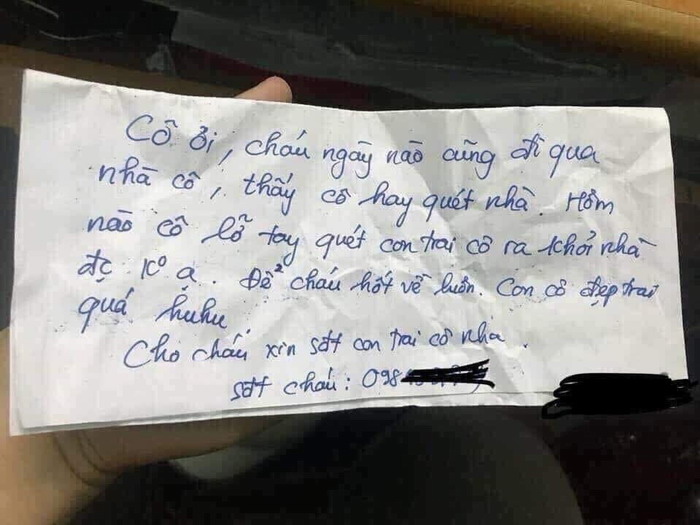 Cô ơi, cháu ngày nào cũng đi qua
nhà cô, thấy cô hay quét nhà. Hôm
nào cô lỡ tay quét con trai cô ra khỏi nhà
đc k⁰ ạ. Để cháu hốt về luôn. Con cô đẹp trai
quá huhu
Cho cháu xin sđt con trai cô nha.
sđt cháu: 098